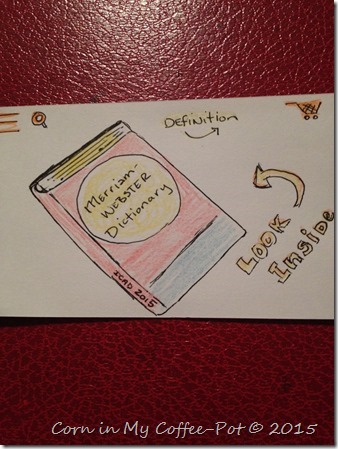 Definition
Merriam-
WEBSTER
Dictionary
LOOK
Inside
ICAD 2015
Corn in My Coffee-Pot © 2015